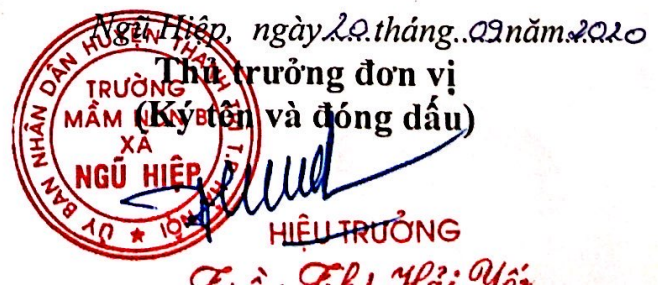 Ngũ Hiệp, ngày 20 tháng..09 năm 2020
Thủ trưởng đơn vị
(Ký tên và đóng dấu)
ỦY BAN NHÂN DÂN HUYỆN THANH TRÌ T.P HÀ NỘI
TRƯỜNG
MẦM NON B
XÃ
NGŨ HIỆP
HIỆU TRƯỞNG
Trần Thị Hải Yến